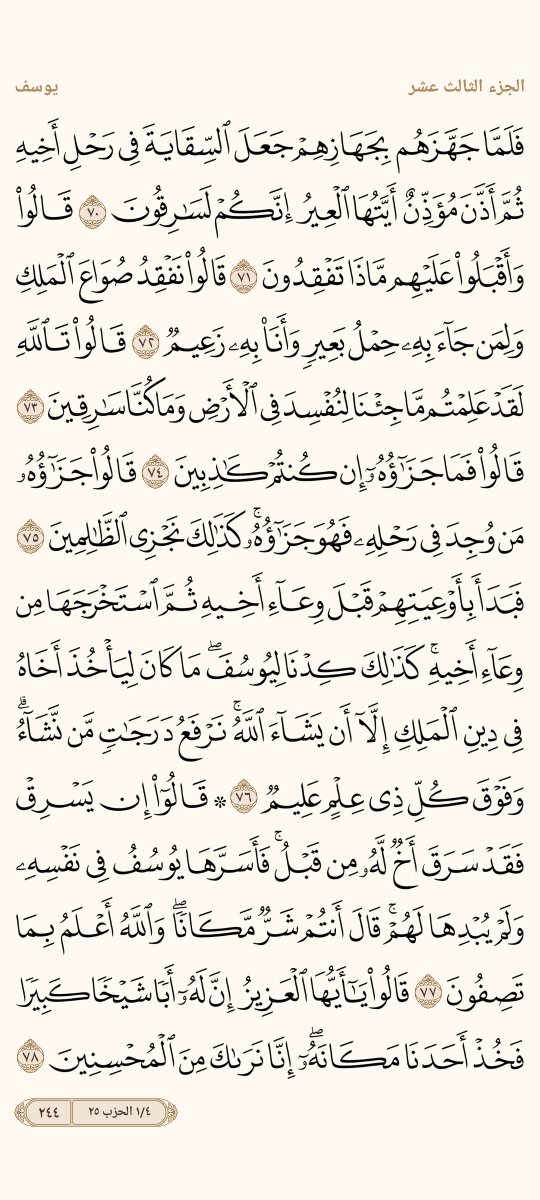 الجزء الثالث عشر
يوسف
فَلَمَّا جَهَّزَهُم بِجَهَازِهِمْ جَعَلَ ٱلسِّقَايَةَ فِى رَحْلِ أَخِيهِ
ثُمَّ أَذَّنَ مُؤَذِّنٌ أَيَّتُهَا ٱلْعِيرُ إِنَّكُمْ لَسَٰرِقُونَ ٧٠ قَالُوا۟
وَأَقْبَلُوا۟ عَلَيْهِم مَّاذَا تَفْقِدُونَ ٧١ قَالُوا۟ نَفْقِدُ صُوَاعَ ٱلْمَلِكِ
وَلِمَن جَآءَ بِهِۦ حِمْلُ بَعِيرٍ وَأَنَا۠ بِهِۦ زَعِيمٌ ٧٢ قَالُوا۟ تَٱللَّهِ
لَقَدْ عَلِمْتُم مَّا جِئْنَا لِنُفْسِدَ فِى ٱلْأَرْضِ وَمَا كُنَّا سَٰرِقِينَ ٧٣
قَالُوا۟ فَمَا جَزَٰٓؤُهُۥٓ إِن كُنتُمْ كَٰذِبِينَ ٧٤ قَالُوا۟ جَزَٰٓؤُهُۥ
مَن وُجِدَ فِى رَحْلِهِۦ فَهُوَ جَزَٰٓؤُهُۥ ۚ كَذَٰلِكَ نَجْزِى ٱلظَّٰلِمِينَ ٧٥
فَبَدَأَ بِأَوْعِيَتِهِمْ قَبْلَ وِعَآءِ أَخِيهِ ثُمَّ ٱسْتَخْرَجَهَا مِن
وِعَآءِ أَخِيهِ ۚ كَذَٰلِكَ كِدْنَا لِيُوسُفَ ۖ مَا كَانَ لِيَأْخُذَ أَخَاهُ
فِى دِينِ ٱلْمَلِكِ إِلَّآ أَن يَشَآءَ ٱللَّهُ ۚ نَرْفَعُ دَرَجَٰتٍ مَّن نَّشَآءُ ۗ
وَفَوْقَ كُلِّ ذِى عِلْمٍ عَلِيمٌ ٧٦ * قَالُوٓا۟ إِن يَسْرِقْ
فَقَدْ سَرَقَ أَخٌ لَّهُۥ مِن قَبْلُ ۚ فَأَسَرَّهَا يُوسُفُ فِى نَفْسِهِۦ
وَلَمْ يُبْدِهَا لَهُمْ ۚ قَالَ أَنتُمْ شَرٌّ مَّكَانًا ۖ وَٱللَّهُ أَعْلَمُ بِمَا
تَصِفُونَ ٧٧ قَالُوا۟ يَٰٓأَيُّهَا ٱلْعَزِيزُ إِنَّ لَهُۥٓ أَبًا شَيْخًا كَبِيرًا
فَخُذْ أَحَدَنَا مَكَانَهُۥٓ ۖ إِنَّا نَرَىٰكَ مِنَ ٱلْمُحْسِنِينَ ٧٨
١/٤ الحزب ٢٥
٢٤٤